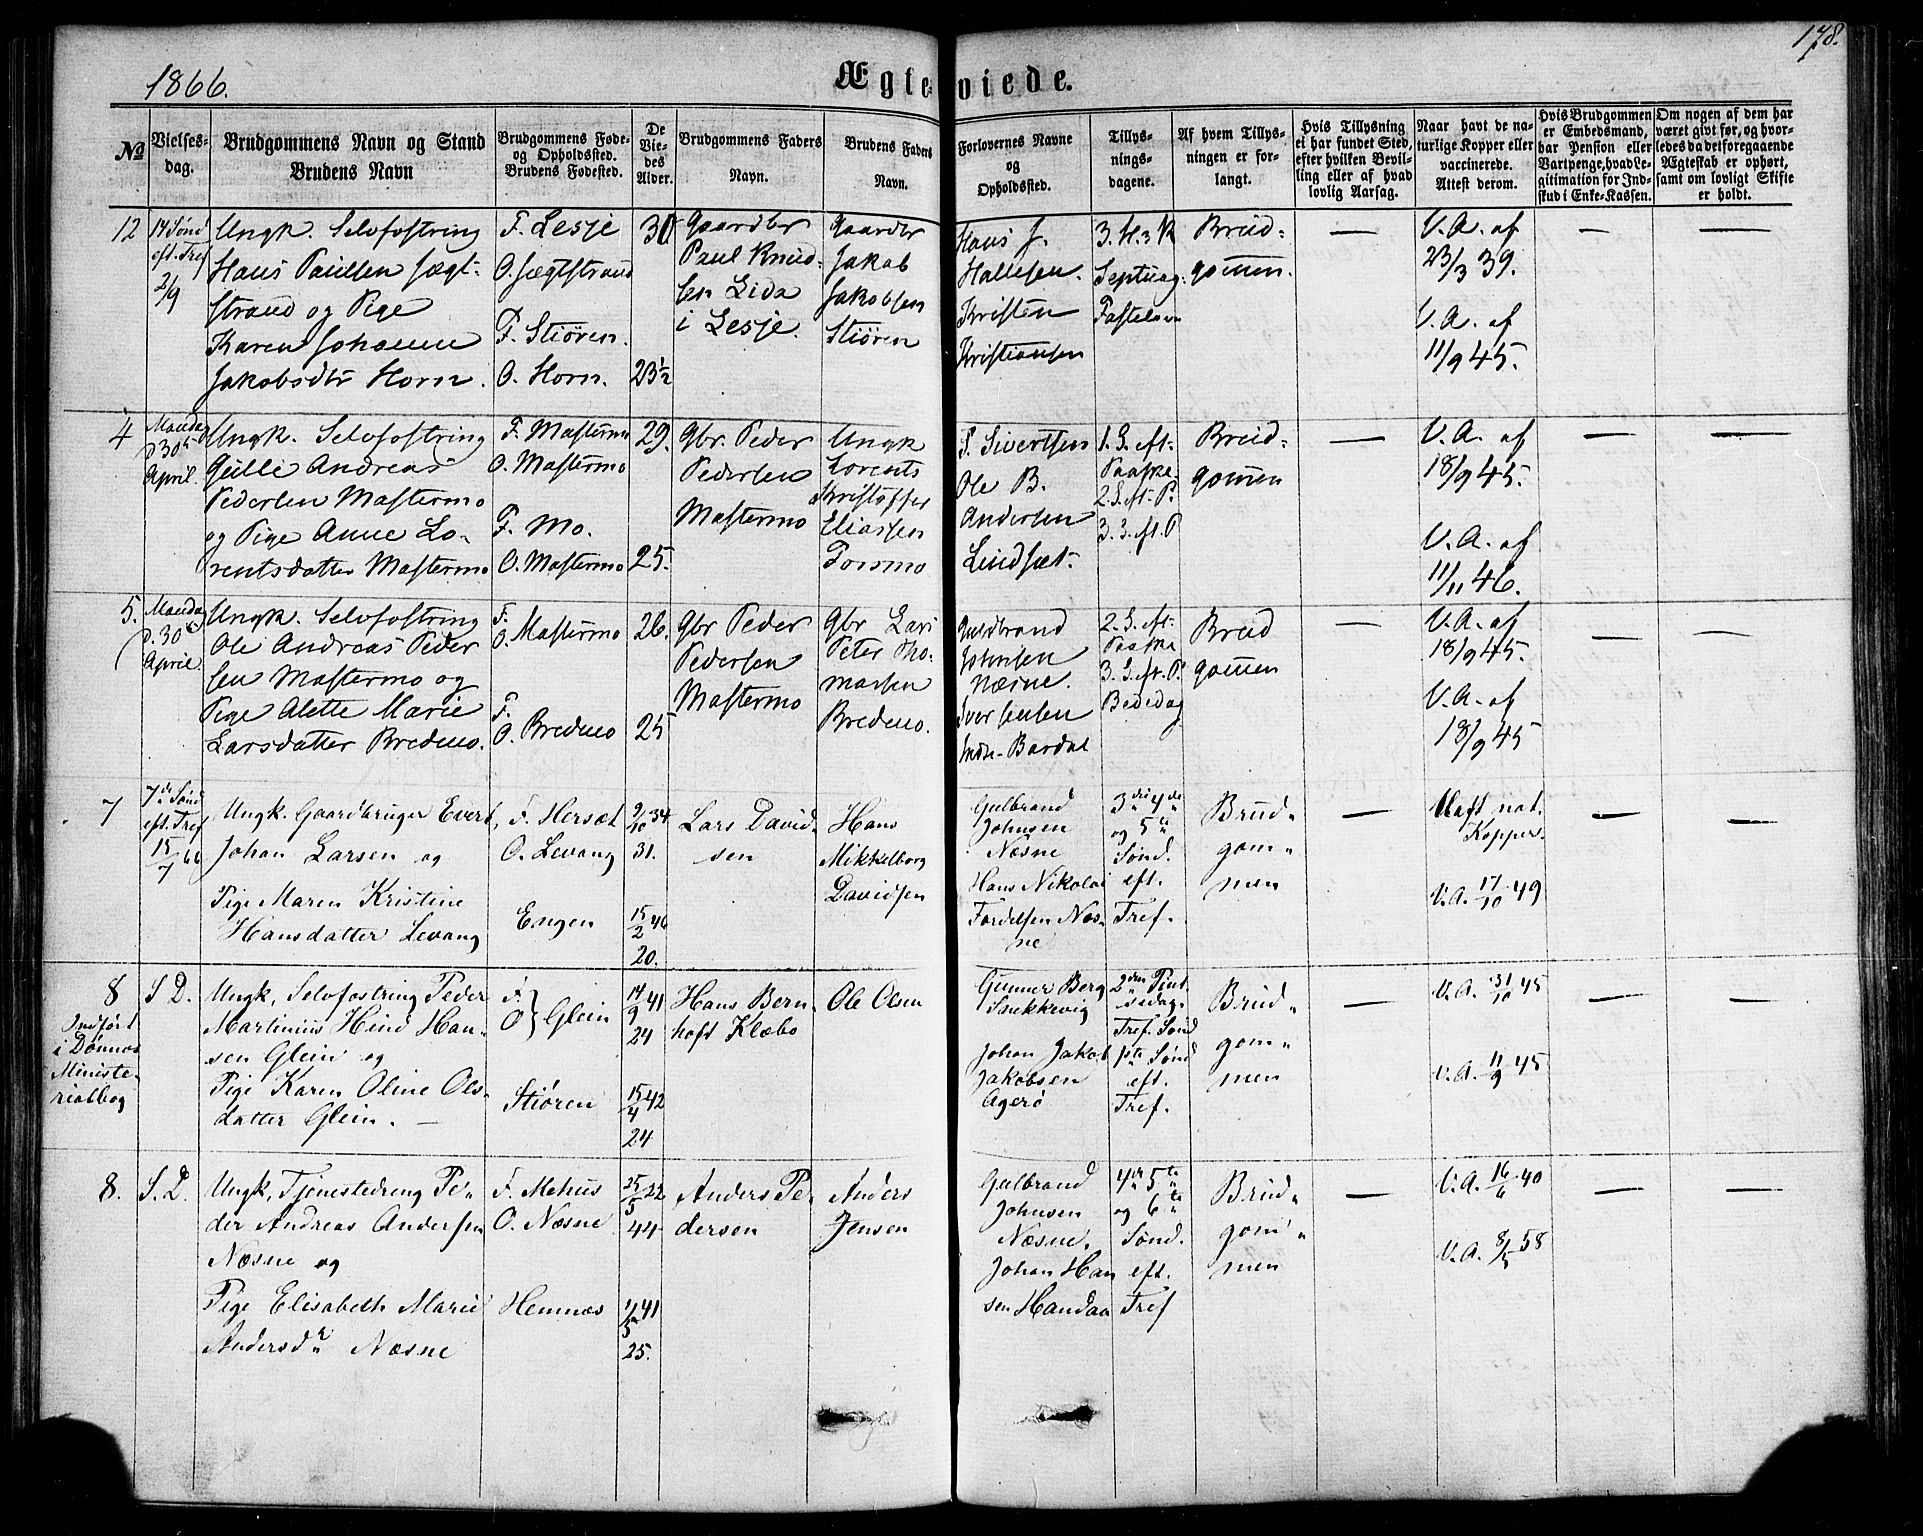 178.
1866.
Ægte-viede.
No
Vielses-
dag.
Brudgommens Navn og Stand
Brudens Navn
Brudgommens Føde-
og Opholdssted.
Brudens Fødested.
De
Vie-
des
Alder.
Brudgommens Faders
Navn.
Brudens Faders
Navn.
Forlovernes Navne
og
Opholdssted.
Tillys-
nings-
dagene.
Af hvem Tillys-
ningen er for-
langt.
Hvis Tillysning
ei har fundet Sted,
efter hvilken Bevil-
ling eller af hvad
lovlig Aarsag.
Naar havt de na-
turlige Kopper eller
vaccinerede.
Attest derom.
Hvis Brudgommen
er Embedsmand,
har Pension eller
Vartpenge, hvad Le-
gitimation for Ind-
skud i Enke-Kassen.
Om nogen af dem har
været givt før, og hvor-
ledes da det foregaaende
Ægteskab er ophørt,
samt om lovligt Skifte
er holdt.
12
14 Sønd
eft. Tref
2/9
Ungk. Selvfostring
Hans Paulsen Sægt-
strand og Pige
Karen Johanne
Jakobsdtr Horn.
F. Lesje
O. Sægtstrand
F. Stiøren.
O. Horn.
30
23½
Gaardbr
Paul Knud-
sen Lida
i Lesje.
Gaardbr
Jakob
Jakobsen
Stiøren
Hans J.
Hallesen.
Kristen
Kristiansen
3. H. 3 K
Septuag.
Fastelavn
Brud-
gommen.
—
V. A. af
23/3 39.
V. A. af
11/9 45.
—
—
4
Mandag
d 30te
April.
Ungk. Selvfostring
Gulle Andreas
Pedersen Mastermo
og Pige Anne Lo-
rentsdatter Mastermo
F. Mastermo
O. Mastermo
F. Mo.
O. Mastermo
29.
25.
Gbr. Peder
Pedersen
Mastermo
Ungk
Lorents
Kristoffer
Eliassen
Forsmo
P. Sivertsen
Ole B.
Andersen
Lindsæt.
1. S. eft.
Paaske
2. S. eft. P.
3. S. eft. P
Brud-
gommen
—
V. A. af
18/9 45.
V. A. af
11/11 46.
—
—
5.
Mandag
d. 30te
April.
Ungk. Selvfostring
Ole Andreas Peder
sen Mastermo og
Pige Alette Marie
Larsdatter Bredmo.
F.
O. Mastermo
F.
O. Bredmo
26.
25
Gbr Peder
Pedersen
Mastermo
Gbr Lars
Peter Tho-
massen
Bredmo.
Guldbrand
Johnsen
Næsne.
Iver Jensen
Indre-Bardal
2. S. eft.
Paaske
3. S. eft. P.
Bededag
Brud
gommen
—
V. A. af
18/9 45.
V. A. af
18/9 45
—
—
7
7de Sønd
eft. Tref
15/7 66
Ungk. Gaardbruger Evert
Johan Larsen og
Pige Maren Kristine
Hansdatter Levang
F. Hersæt
O. Levang
Engen
9/10 34
31.
15/2 46
20.
Lars David-
sen
Hans
Mikkelborg
Davidsen
Gulbrand
Johnsen
Næsne
Hans Nikolai
Fordelsen Næs-
ne
3die 4de
og 5te
Sønd.
eft.
Tref.
Brud-
gom-
men
—
Haft nat.
Kopper.
V. A. 17/10 49
—
—
8
Indført
i Dønnes
Ministe-
rialbog
S. D.
Ungk, Selvfostring Peder
Martinius Hind Han-
sen Glein og
Pige Karen Oline Ols-
datter Glein.
F.
O. } Glein
Stiøren
14/9 41
24
15/4 42
24
Hans Bern-
hoft Klæbo
Ole Olsen
Gunner Berg
Sankkevig
Johan Jakob
Jakobsen
Agerø
2den Pint
sedag.
Tref. Sønd
1ste Sønd
eft.
Tref.
Brud-
gom-
men
—
V. A. 31/10 45
V. A. 11/9 45
—
—
8.
S. D.
Ungk, Tjenestedreng Pe-
der Andreas Andersen
Næsne og
Pige Elisabeth Marie
Andersdr Næsne
F. Mehus
O. Næsne
Hemnæs
25/5 22
44
1/5 41
25.
Anders Pe-
dersen
Anders
Jensen
Gulbrand
Johnsen
Næsne.
Johan Han
sen Handaa
4de 5te
og 6te
Sønd.
eft.
Tref
Brud-
gom-
men
—
V. A. 16/6 40
V. A. 8/5 58
—
—